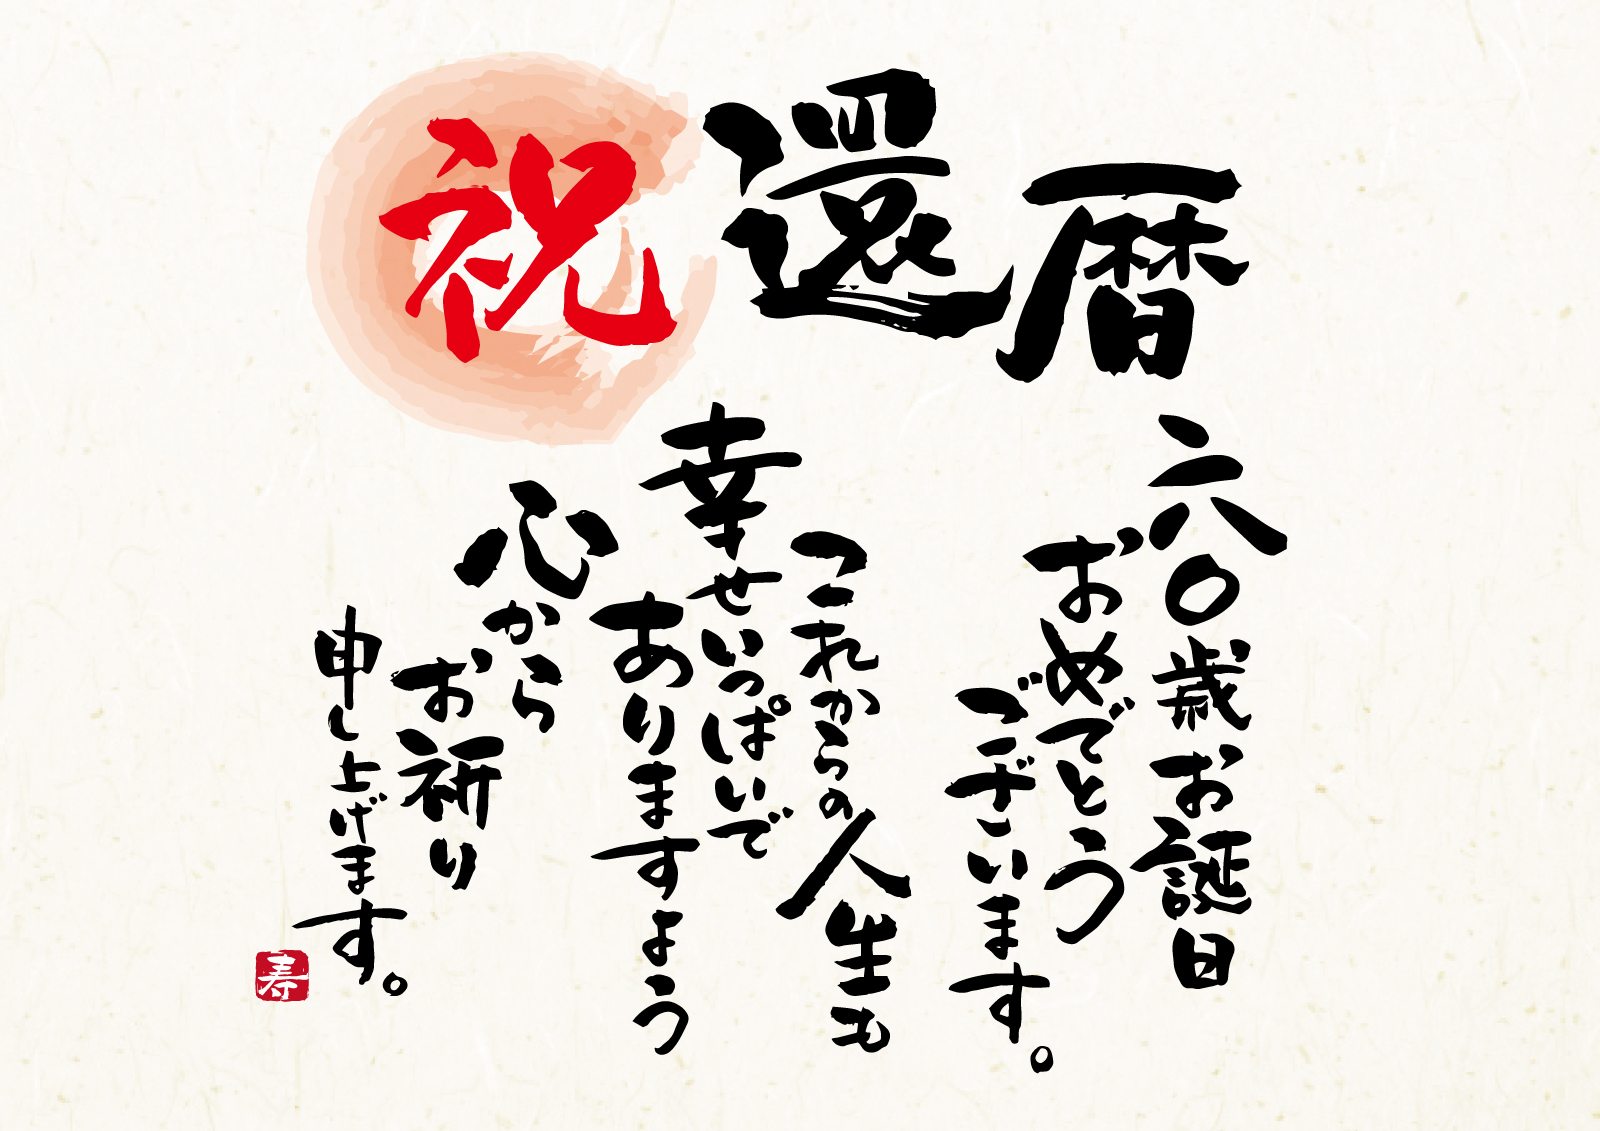 祝還暦
六〇歳お誕生日
おめでとう
ございます。
これからの人生も
幸せいっぱいで
ありますよう
心から
お祈り
申し上げます。
寿